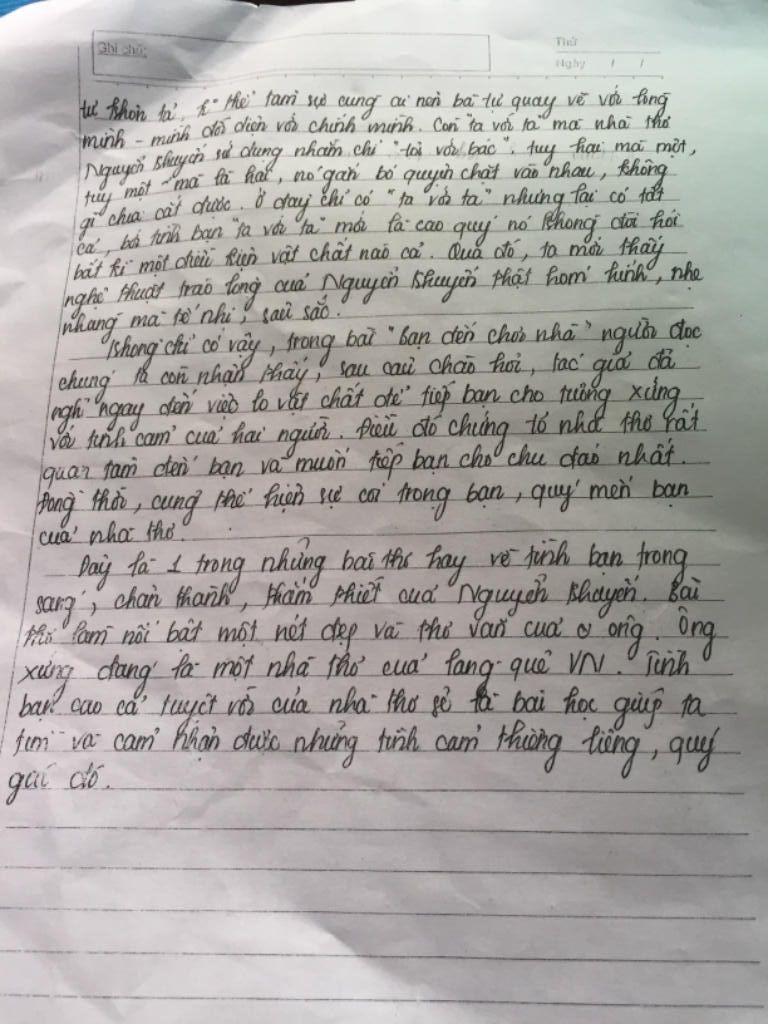 Ghi chú:
Thứ
Ngày / /
tự khôn tả, k thể tâm sự cùng ai nên bà tự quay về với lòng
mình - mình đối diện với chính mình. Còn "ta với ta" mà nhà thơ
Nguyễn Khuyến sử dụng nhằm chỉ "tôi với bác". tuy hai mà một,
tuy một mà là hai, nó gắn bó quyện chặt vào nhau, không
gì chia cắt được. Ở đây chỉ có "ta với ta" nhưng lại có tất
cả, bởi tình bạn "ta với ta" mới là cao quý nó không đòi hỏi
bất kì một điều kiện vật chất nào cả. Qua đó, ta mới thấy
nghệ thuật trào lộng của Nguyễn Khuyến thật hóm hỉnh, nhẹ
nhàng mà tế nhị, sâu sắc.
Không chỉ có vậy, trong bài "Bạn đến chơi nhà" người đọc
chúng ta còn nhận thấy, sau câu chào hỏi, tác giả đã
nghĩ ngay đến việc lo vật chất để tiếp bạn cho tương xứng
với tình cảm của hai người. Điều đó chứng tỏ nhà thơ rất
quan tâm đến bạn và muốn tiếp bạn cho chu đáo nhất.
Đồng thời, cũng thể hiện sự coi trọng bạn, quý mến bạn
của nhà thơ.
Đây là 1 trong những bài thơ hay về tình bạn trong
sáng, chân thành, thắm thiết của Nguyễn Khuyến. Bài
thơ làm nổi bật một nét đẹp và thơ văn của ông. Ông
xứng đáng là một nhà thơ của làng quê VN. Tình
bạn cao cả tuyệt vời của nhà thơ sẽ là bài học giúp ta
tìm và cảm nhận được những tình cảm thường liêng, quý
giá đó.